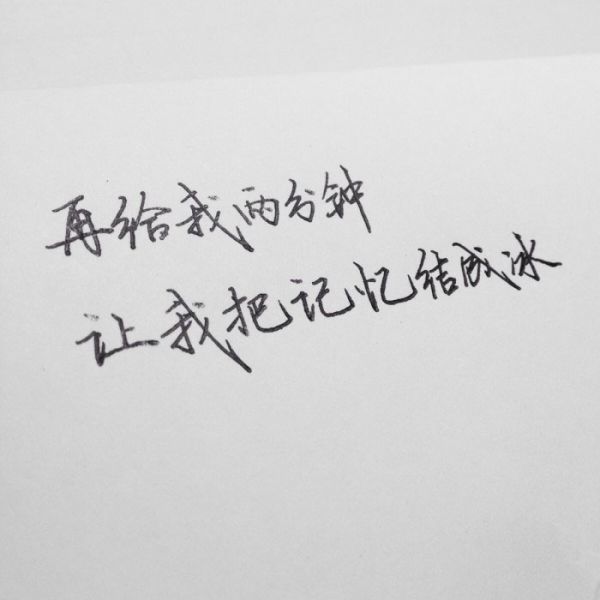 再给我两分钟
让我把记忆结成冰